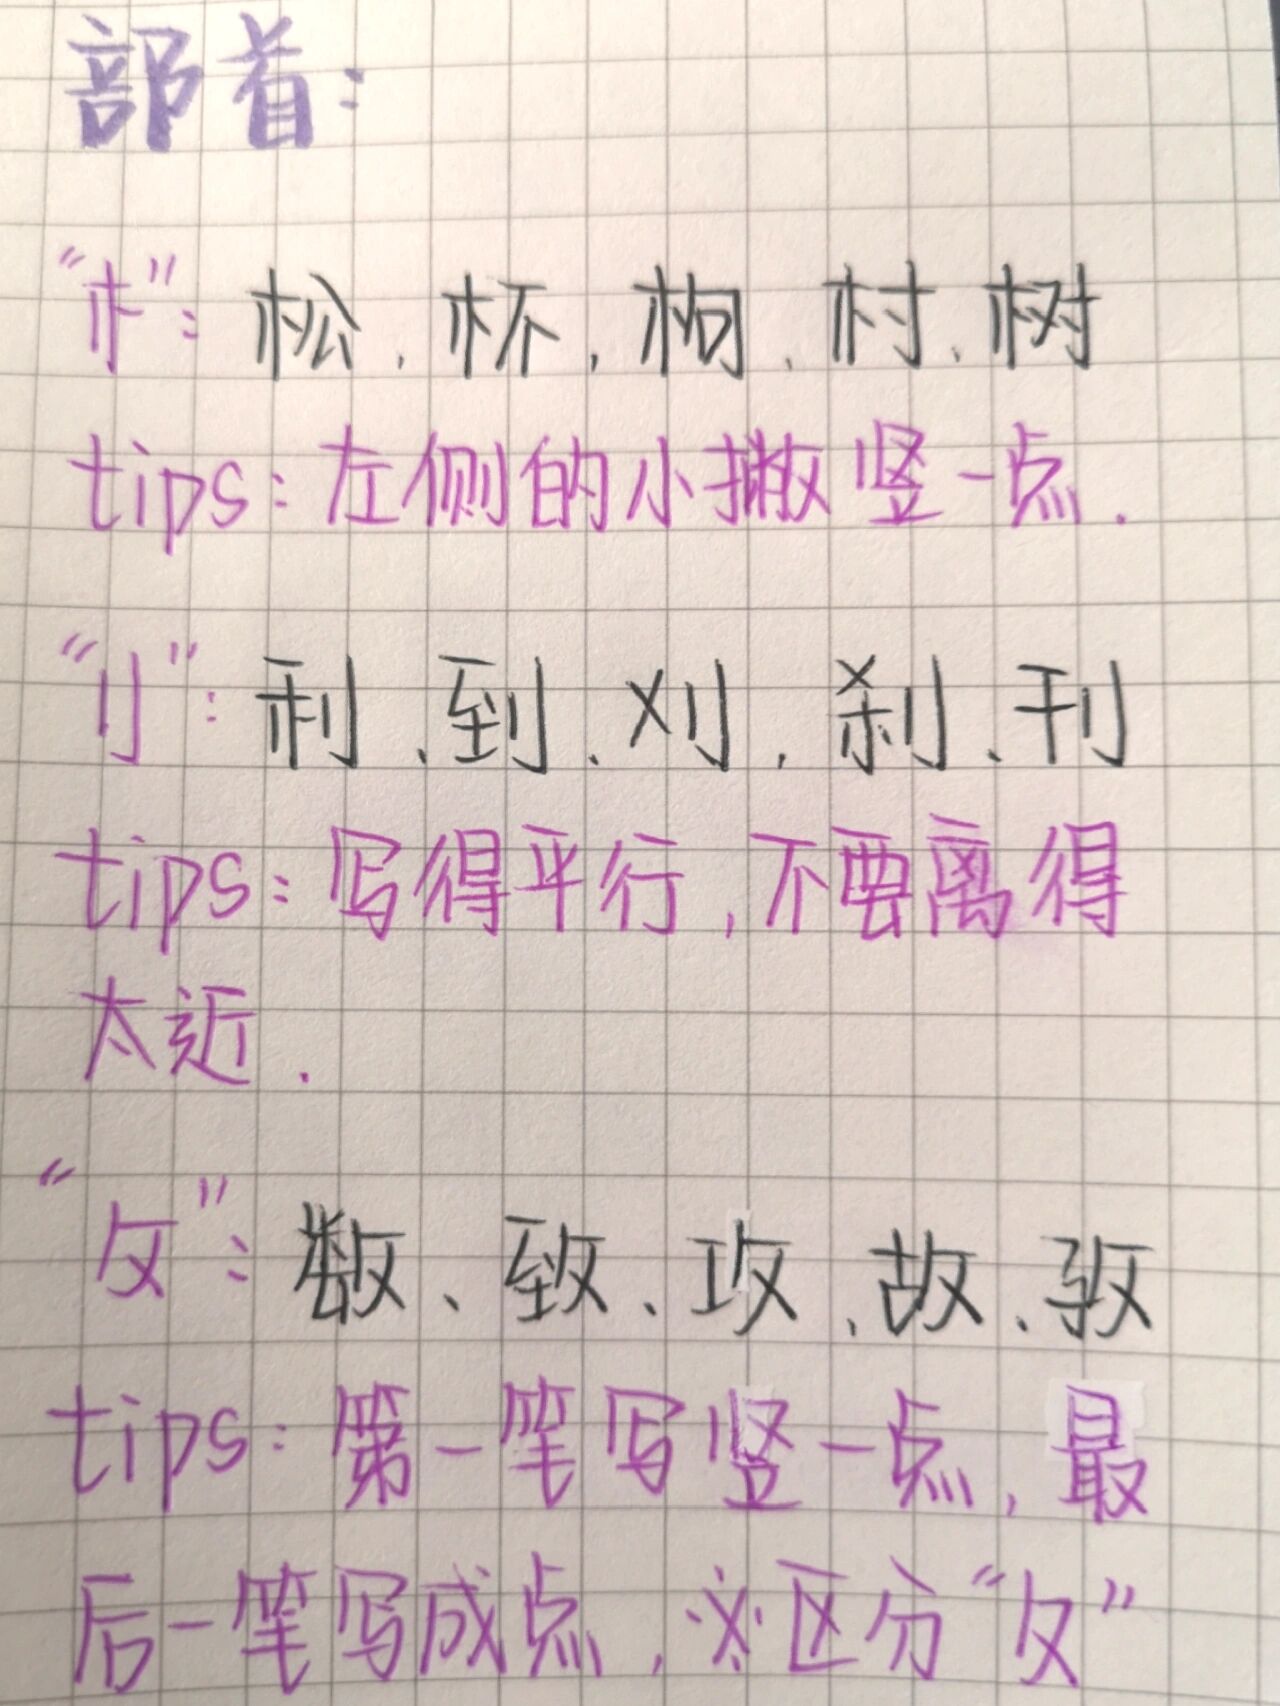 部首：
“木”：松、杯、构、村、树
tips：左侧的小撇竖一点．
“刂”：利、到、刈、刹、刊
tips：写得平行，不要离得
太近．
“攵”：数、致、攻、故、孜
tips：第一笔写竖一点，最
后一笔写成点，※区分“夂”